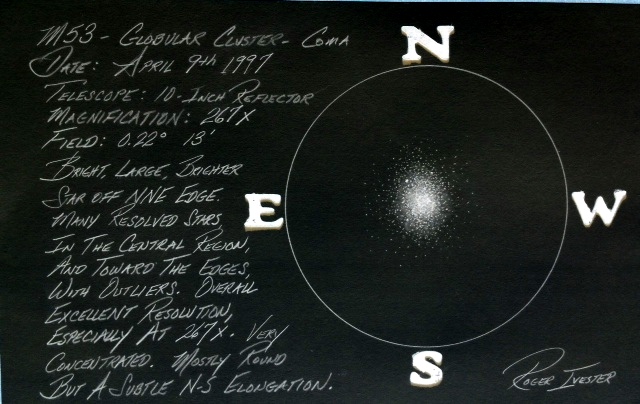 M53 - Globular Cluster - Coma
Date: April 9th 1997
Telescope: 10-Inch Reflector
Magnification: 267x
Field: 0.22° 13'
Bright, Large, Brighter
Star off NNE Edge.
Many Resolved Stars
In The Central Region,
And Toward The Edges,
With Outliers. Overall
Excellent Resolution,
Especially At 267x. Very
Concentrated. Mostly Round
But A Subtle N-S Elongation.
N
E
W
S
Roger Ivester